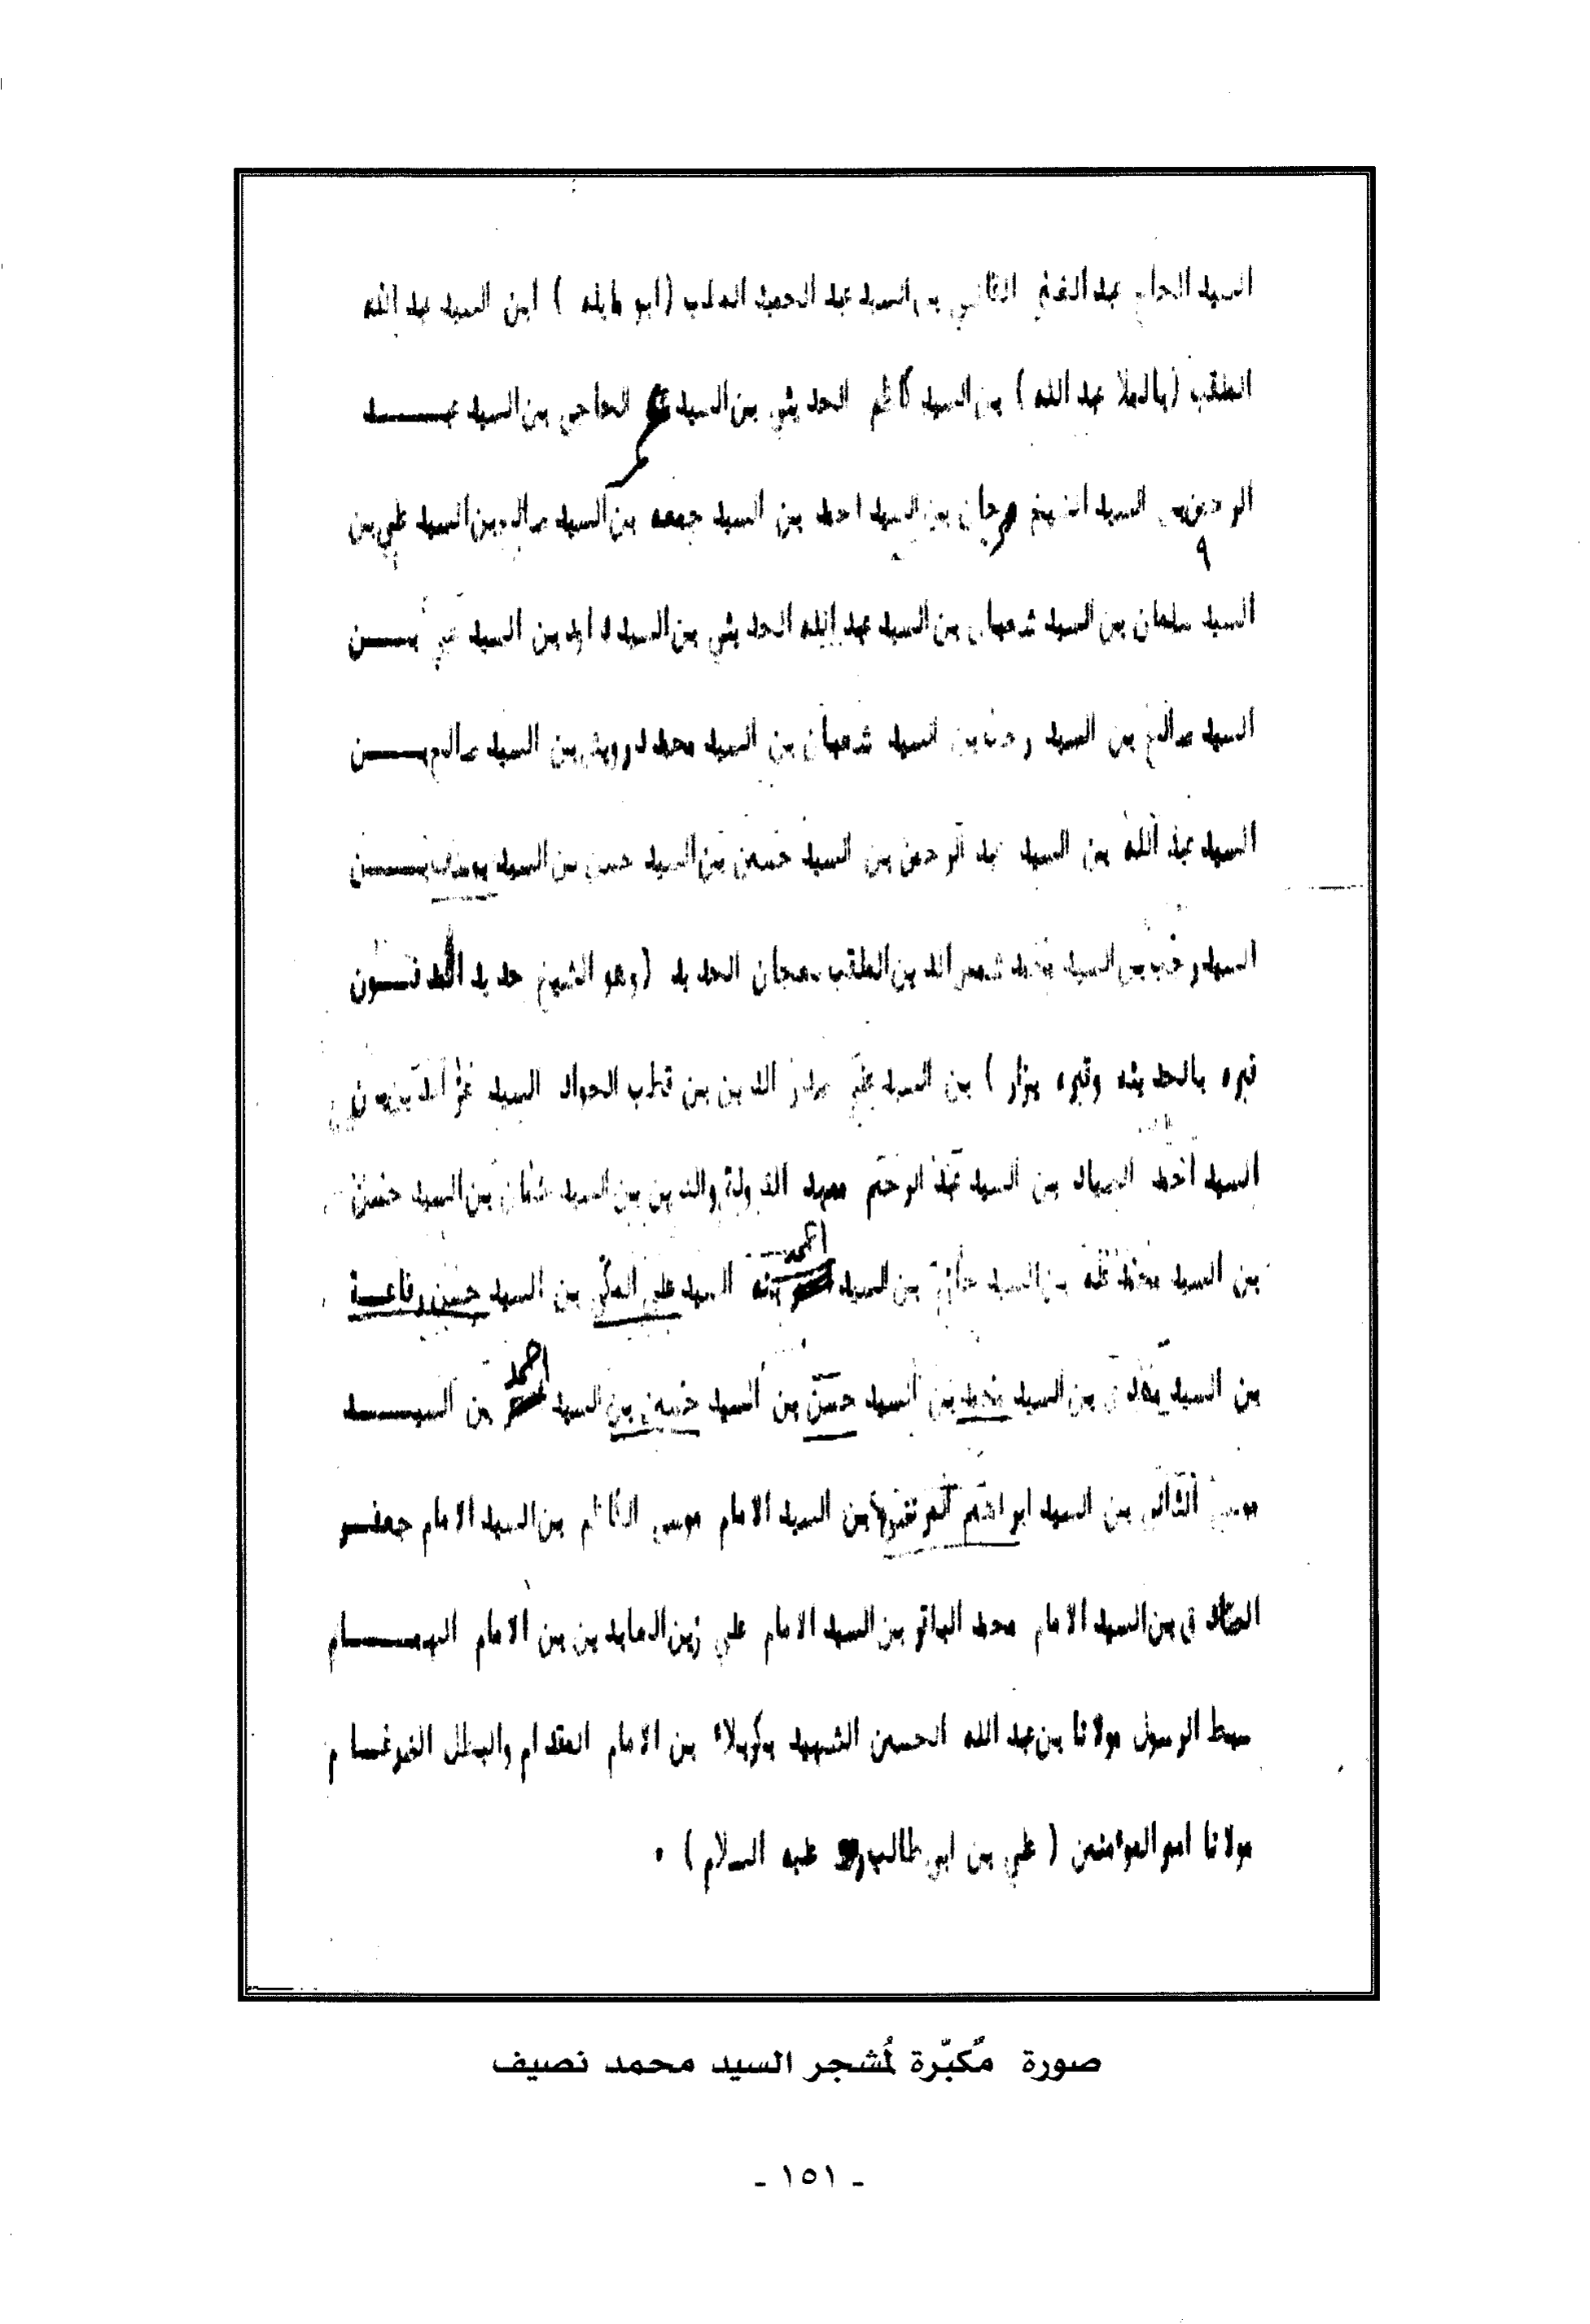 السيد الحاج عبد الغني بن السيد عبد الحميد الملقب (ابو هايله) ابن السيد عبد الله
الملقب (بالملا عبد الله) بن السيد كاظم الحديثي بن السيد الحاجي بن السيد عبـــــد
الرحمن بن السيد الشيخ رجب بن السيد احمد بن السيد جمعه بن السيد صالح بن السيد علي بن
السيد سلمان بن السيد شعبان بن السيد عبد الله الحديثي بن السيد داود بن السيد علي بـــــن
السيد صالح بن السيد رجب بن السيد شعبان بن السيد محمد درويش بن السيد صالح بـــــن
السيد عبد الله بن السيد عبد الرحمن بن السيد حسين بن السيد حسن بن السيد يوسف بـــــن
السيد رجب بن السيد محمد شمس الدين الملقب بعجان الحديد (وهو الشيخ حديد المدفـــون
قبره بالحديثه وقبره يزار) بن السيد علي صدر الدين بن قطب الجواد السيد عز الدين بن
السيد احمد الصياد بن السيد عبد الرحيم ممهد الدولة والدين بن السيد عثمان بن السيد حسن
بن السيد محمد عسله بن السيد حازم بن السيد احمد السيد علي المكي بن السيد حسن رفاعـــة
بن السيد مهدي بن السيد محمد بن السيد حسن بن السيد حسين بن السيد احمد بن السيـــــد
موسى الثاني بن السيد ابراهيم المرتضى بن السيد الامام موسى الكاظم بن السيد الامام جعفـــر
الصادق بن السيد الامام محمد الباقر بن السيد الامام علي زين العابدين بن الامام الهمـــــام
سبط الرسول مولانا بن عبد الله الحسين الشهيد بكربلاء بن الامام المقدام والبطل الضرغـــام
مولانا امير المؤمنين (علي بن ابي طالب عليه السلام) ٠
صورة مُكبّرة لمُشجر السيد محمد نصيف
- ١٥١ -